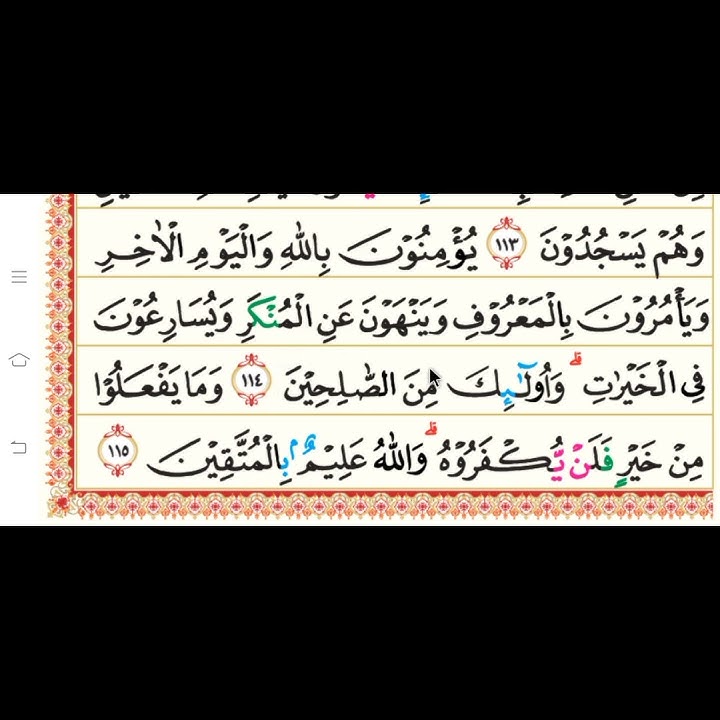 وَهُمْ يَسْجُدُوْنَ ١١٣ يُؤْمِنُوْنَ بِاللّٰهِ وَالْيَوْمِ الْاٰخِرِ
وَيَأْمُرُوْنَ بِالْمَعْرُوْفِ وَيَنْهَوْنَ عَنِ الْمُنْكَرِ وَيُسَارِعُوْنَ
فِى الْخَيْرٰتِۗ وَاُولٰۤىِٕكَ مِنَ الصّٰلِحِيْنَ ١١٤ وَمَا يَفْعَلُوْا
مِنْ خَيْرٍ فَلَنْ يُّكْفَرُوْهُۗ وَاللّٰهُ عَلِيْمٌۢ بِالْمُتَّقِيْنَ ١١٥